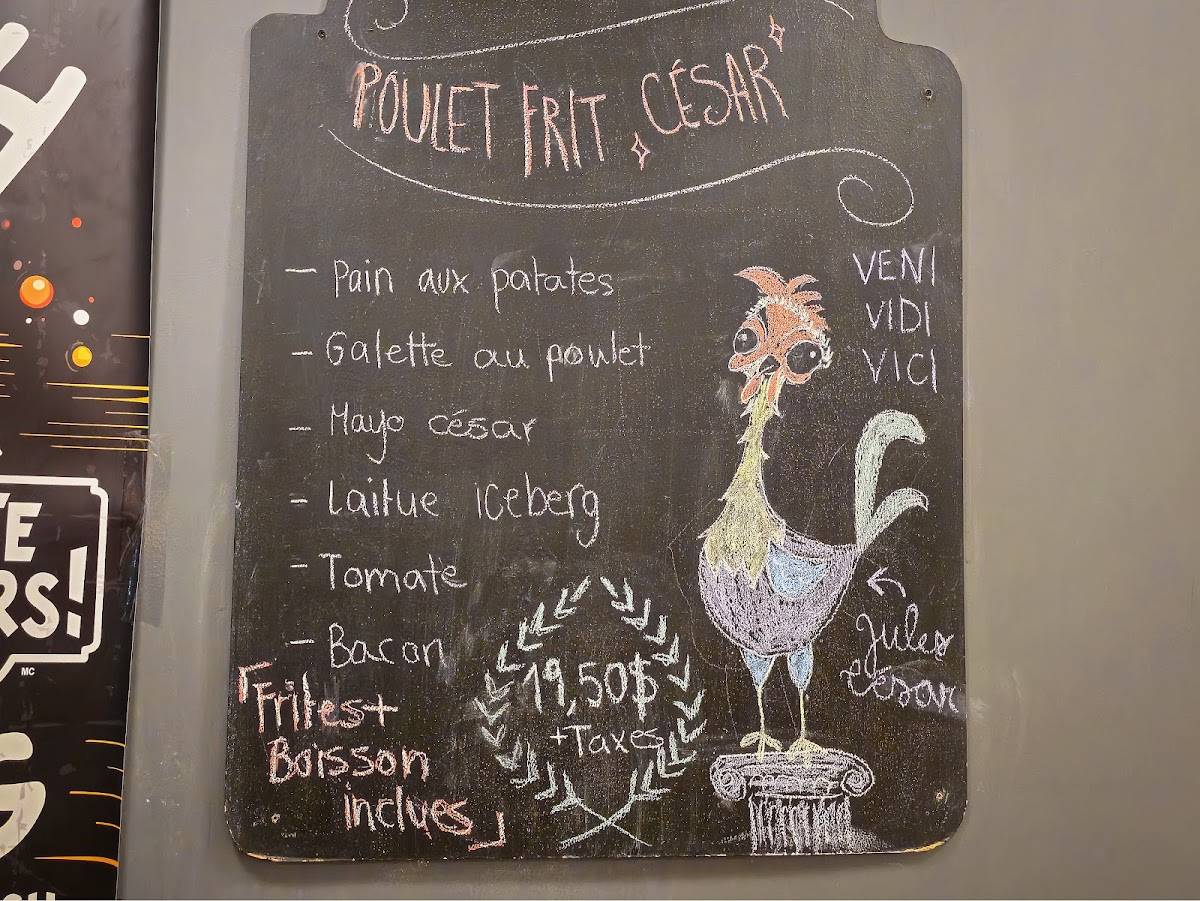 POULET FRIT CÉSAR
– Pain aux patates
– Galette au poulet
– Mayo césar
– Laitue iceberg
– Tomate
– Bacon
「Frites+
Boisson
inclues」
19,50$
+Taxes
VENI
VIDI
VICI
Jules
César
TE
RS!
MC